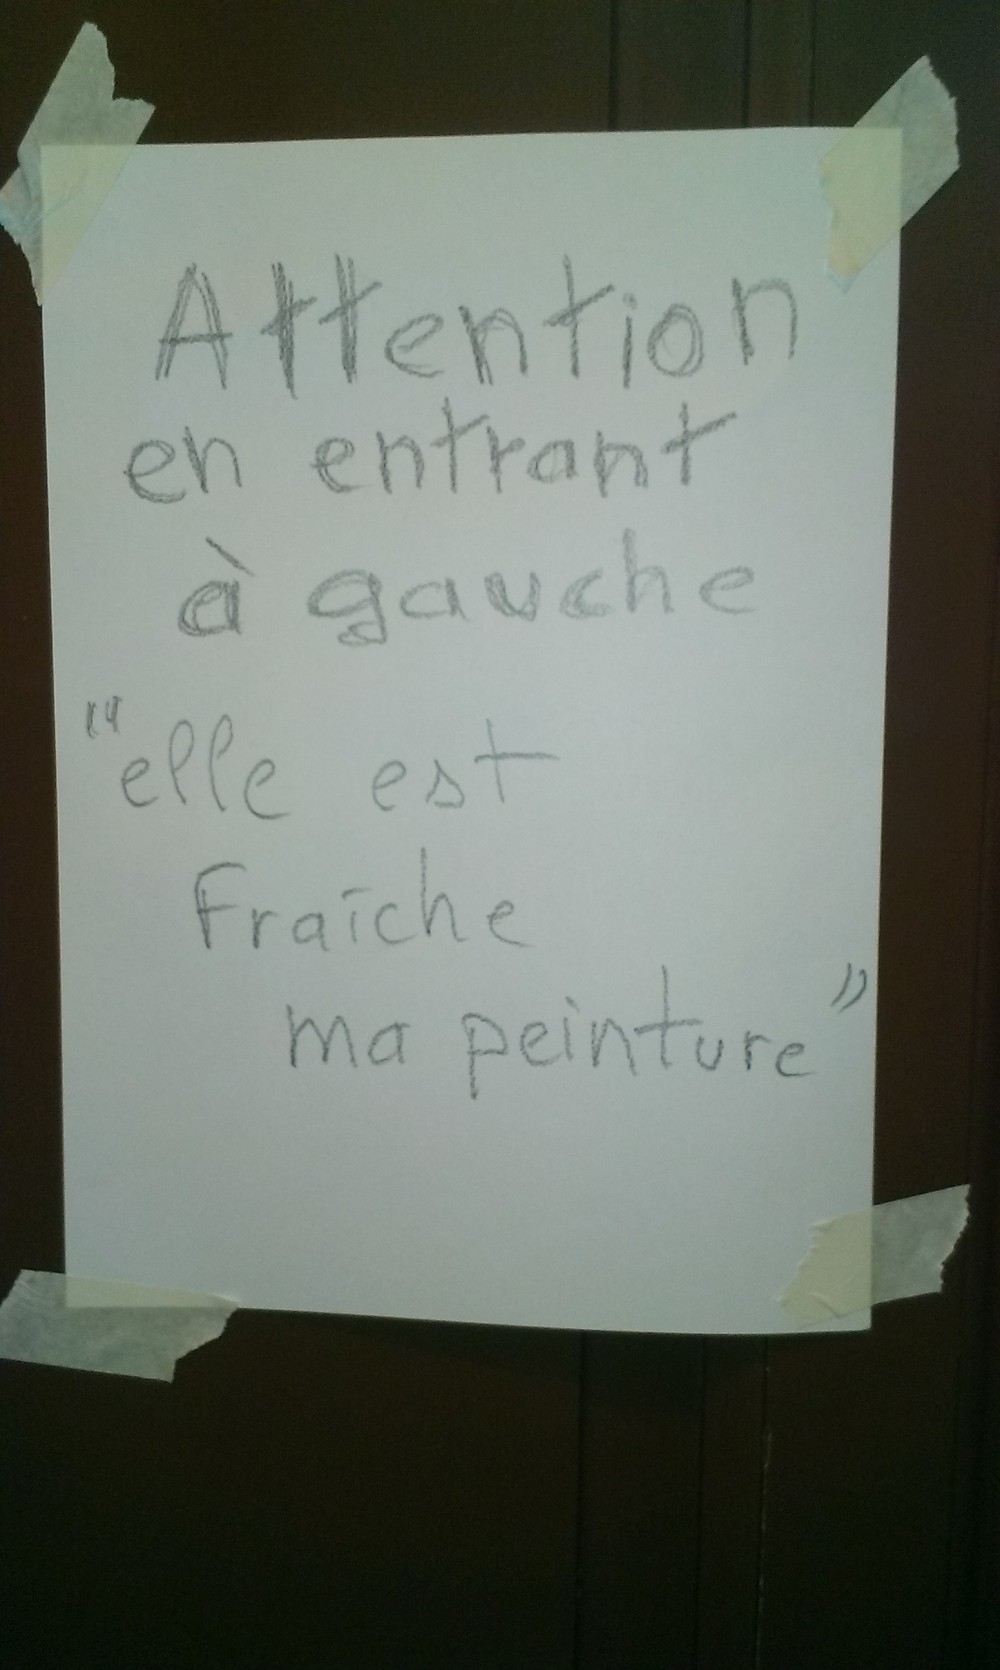 Attention
en entrant
à gauche
"elle est
Fraîche
ma peinture"